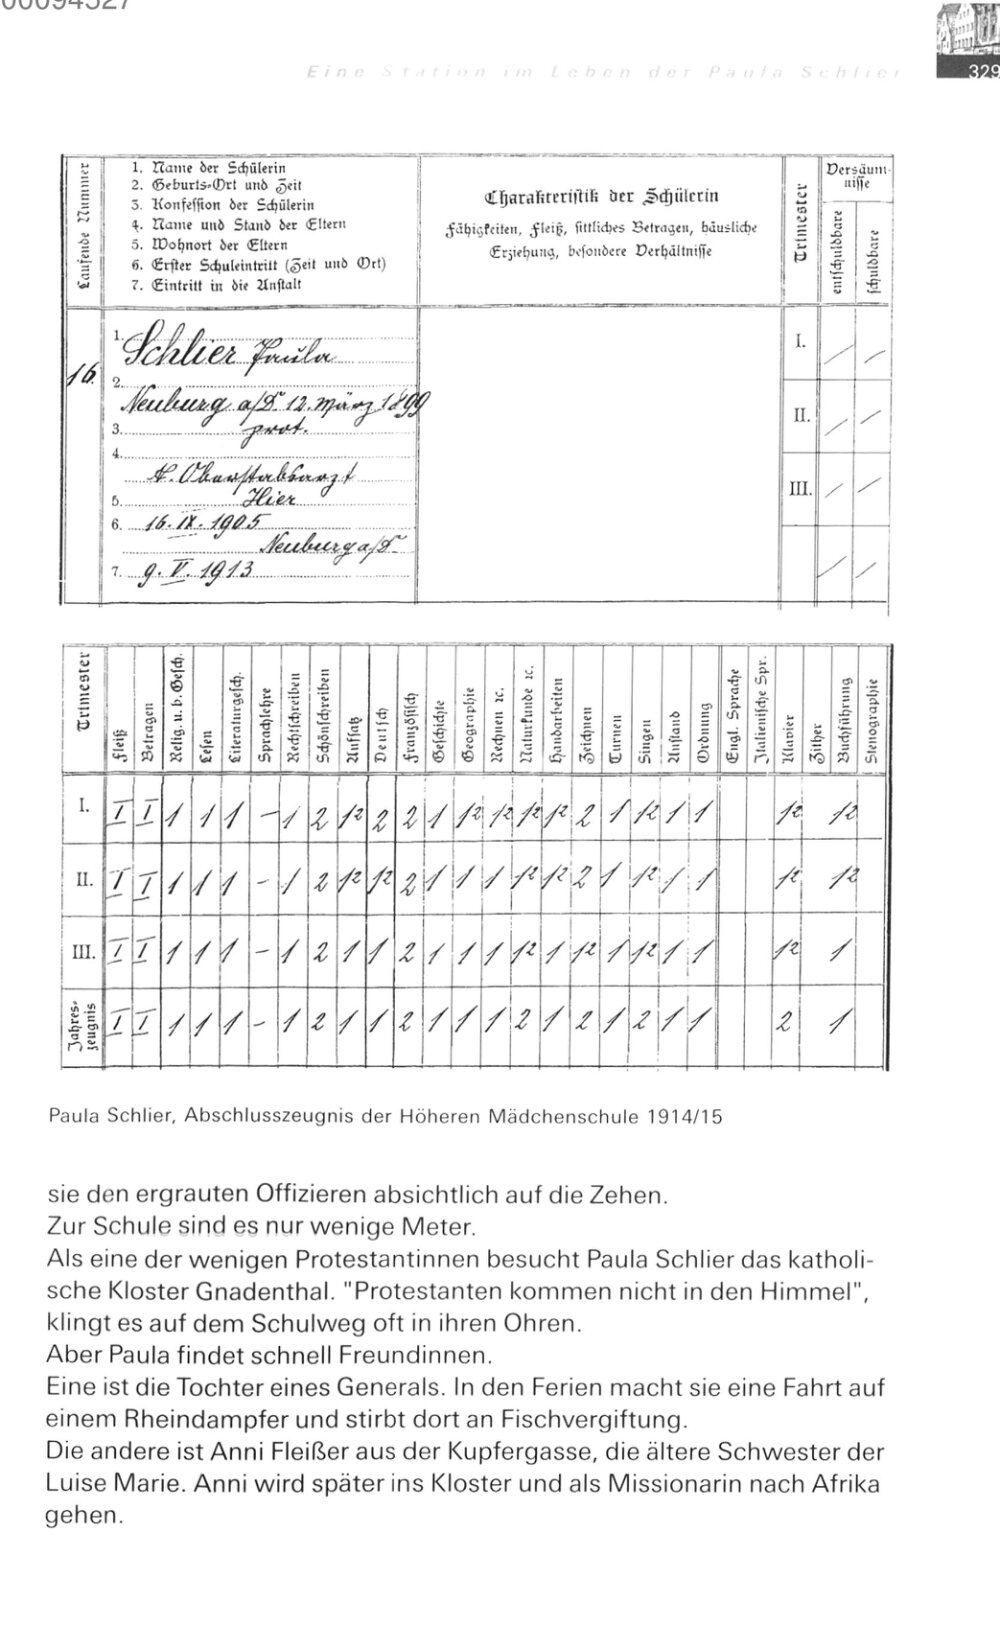 00094527
Eine Station im Leben der Paula Schlier
329
Laufende Nummer
1. Name der Schülerin
2. Geburts-Ort und Zeit
3. Konfession der Schülerin
4. Name und Stand der Eltern
5. Wohnort der Eltern
6. Erster Schuleintritt (Zeit und Ort)
7. Eintritt in die Anstalt
Charakteristik der Schülerin
Fähigkeiten, Fleiß, sittliches Betragen, häusliche
Erziehung, besondere Verhältnisse
Trimester
Versäum-
nisse
entschuldbare
schuldbare
16.
1. Schlier Paula
2.
Neuburg a/D. 12. März 1899
3. prot.
4.
K. Oberstabsarzt
5. Hier
6. 16. IX. 1905
Neuburg a/D.
7. 9. V. 1913
I.
II.
III.
Trimester Fleiß Betragen Relig. u. b. Gesch. Lesen Literaturgesch. Sprachlehre Rechtschreiben Schönschreiben Aufsatz Deutsch Französisch Geschichte Geographie Rechnen ꝛc. Naturkunde ꝛc. Handarbeiten Zeichnen Turnen Singen Anstand Ordnung Engl. Sprache Italienische Spr. Klavier Zither Buchführung Stenographie
I. I I 1 1 1 – 1 2 1-2 2 2 1 1-2 1-2 1-2 1-2 2 1 1-2 1 1 1-2 1-2
II. I I 1 1 1 – 1 2 1-2 1-2 2 1 1 1 1-2 1-2 2 1 1-2 1 1 1-2 1-2
III. I I 1 1 1 – 1 2 1 1 2 1 1 1 1-2 1 1-2 1 1-2 1 1 1-2 1
Jahres-
zeugnis I I 1 1 1 – 1 2 1 1 2 1 1 1 2 1 2 1 2 1 1 2 1
Paula Schlier, Abschlusszeugnis der Höheren Mädchenschule 1914/15
sie den ergrauten Offizieren absichtlich auf die Zehen.
Zur Schule sind es nur wenige Meter.
Als eine der wenigen Protestantinnen besucht Paula Schlier das katholi-
sche Kloster Gnadenthal. "Protestanten kommen nicht in den Himmel",
klingt es auf dem Schulweg oft in ihren Ohren.
Aber Paula findet schnell Freundinnen.
Eine ist die Tochter eines Generals. In den Ferien macht sie eine Fahrt auf
einem Rheindampfer und stirbt dort an Fischvergiftung.
Die andere ist Anni Fleißer aus der Kupfergasse, die ältere Schwester der
Luise Marie. Anni wird später ins Kloster und als Missionarin nach Afrika
gehen.